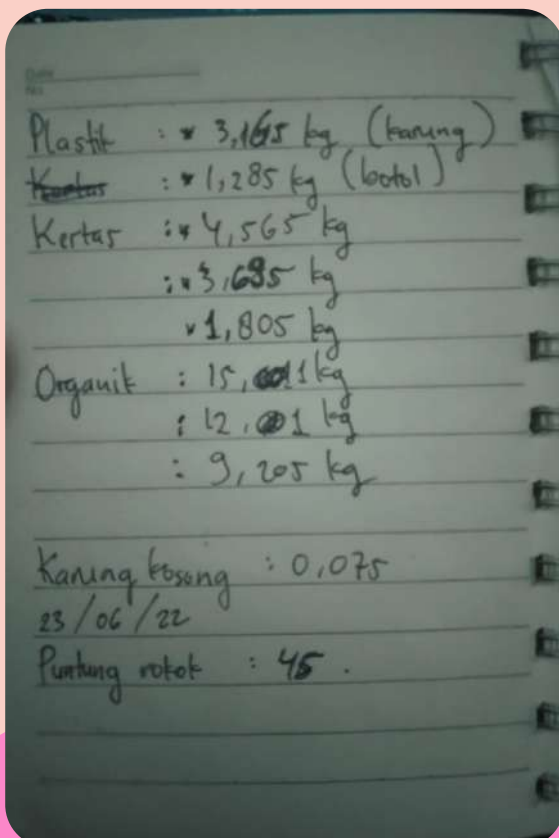 Date
No
Plastik : * 3,165 kg (karung)
Kertas : * 1,285 kg (botol)
Kertas : * 4,565 kg
: * 3,695 kg
* 1,805 kg
Organik : 15,11 kg
: 12,1 kg
: 9,205 kg
Karung kosong : 0,075
23/06/22
Puntung rokok : 45.